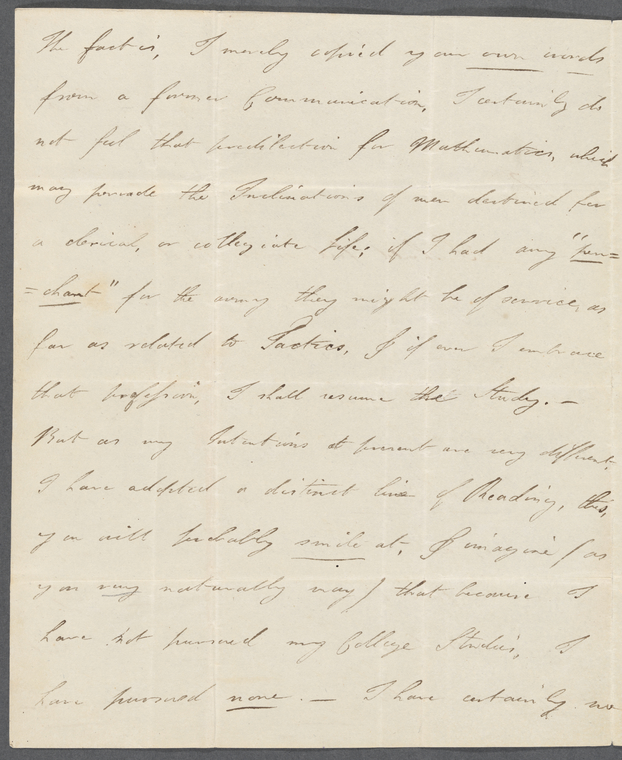 The fact is, I merely copied your own words
from a former Communication, I certainly do
not feel that predilection for Mathematics, which
may pervade the Inclinations of men destined for
a clerical, or collegiate Life; if I had any "pen=
=chant" for the army they might be of service, as
far as related to Tactics, & if ever I embrace
that profession, I shall resume the Study. —
But as my Intentions at present are very different,
I have adopted a distinct line of Reading, this,
you will probably smile at, & imagine (as
you very naturally may) that because I
have not pursued my College Studies, I
have pursued none. — I have certainly no